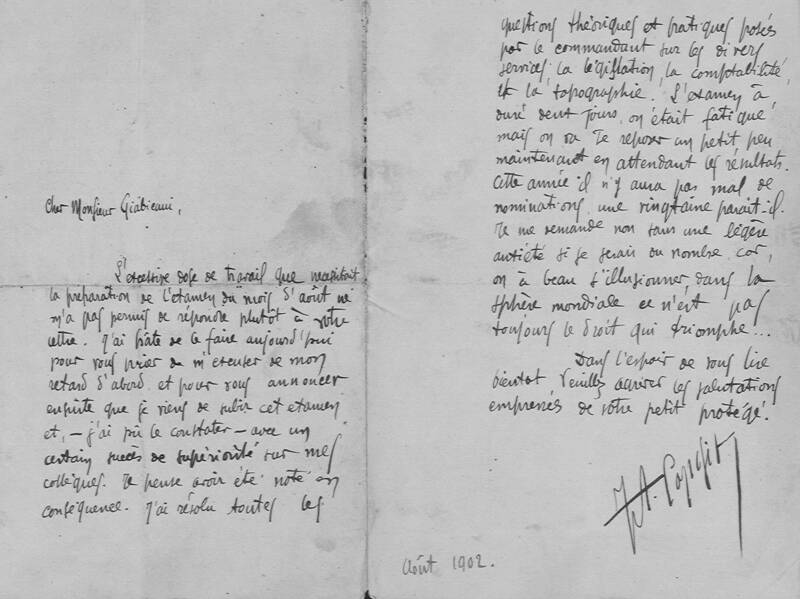 Cher Monsieur Giabicani,
L'excessive dose de travail que nécessitait
la préparation de l'examen du mois d'août ne
m'a pas permis de répondre plutôt à votre
lettre. J'ai hâte de le faire aujourd'hui
pour vous prier de m'excuser de mon
retard d'abord et pour vous annoncer
ensuite que je viens de subir cet examen
et, – j'ai pu le constater – avec un
certain succès de supériorité sur mes
collègues. Je pense avoir été noté en
conséquence. J'ai résolu toutes les
questions théoriques et pratiques posés
par le commandant sur les divers
services la législation, la comptabilité,
et la topographie. L'examen à
duré deux jours, on était fatigué
mais on va se reposer un petit peu
maintenant en attendant les résultats.
Cette année il n'y aura pas mal de
nominations, une vingtaine parait-il.
Je me demande non sans une légère
anxiété si je serais du nombre car,
on à beau s'illusionner, dans la
sphère mondiale ce n'est pas
toujours le droit qui triomphe...
Dans l'espoir de vous lire
bientot, veuillez agréer les salutations
empressés de votre petit protégé.
Août 1902.